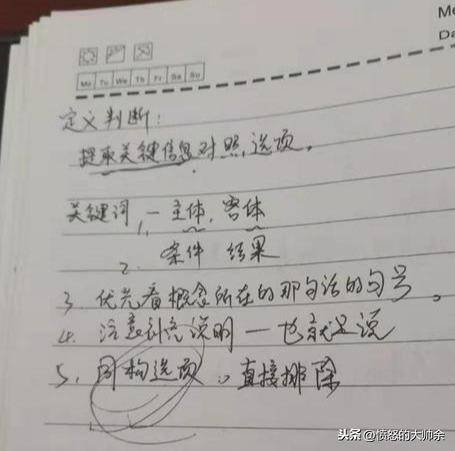 Me
Da
Mo Tu We Th Fr Sa Su
定义判断:
提取关键信息对照选项。
关键词,1、一主体,客体
2. 条件 结果
3. 优先看概念所在的那句话的句号。
4. 注意补充说明一也就是说
5. 同构选项。直接排除
头条@愤怒的大帅余